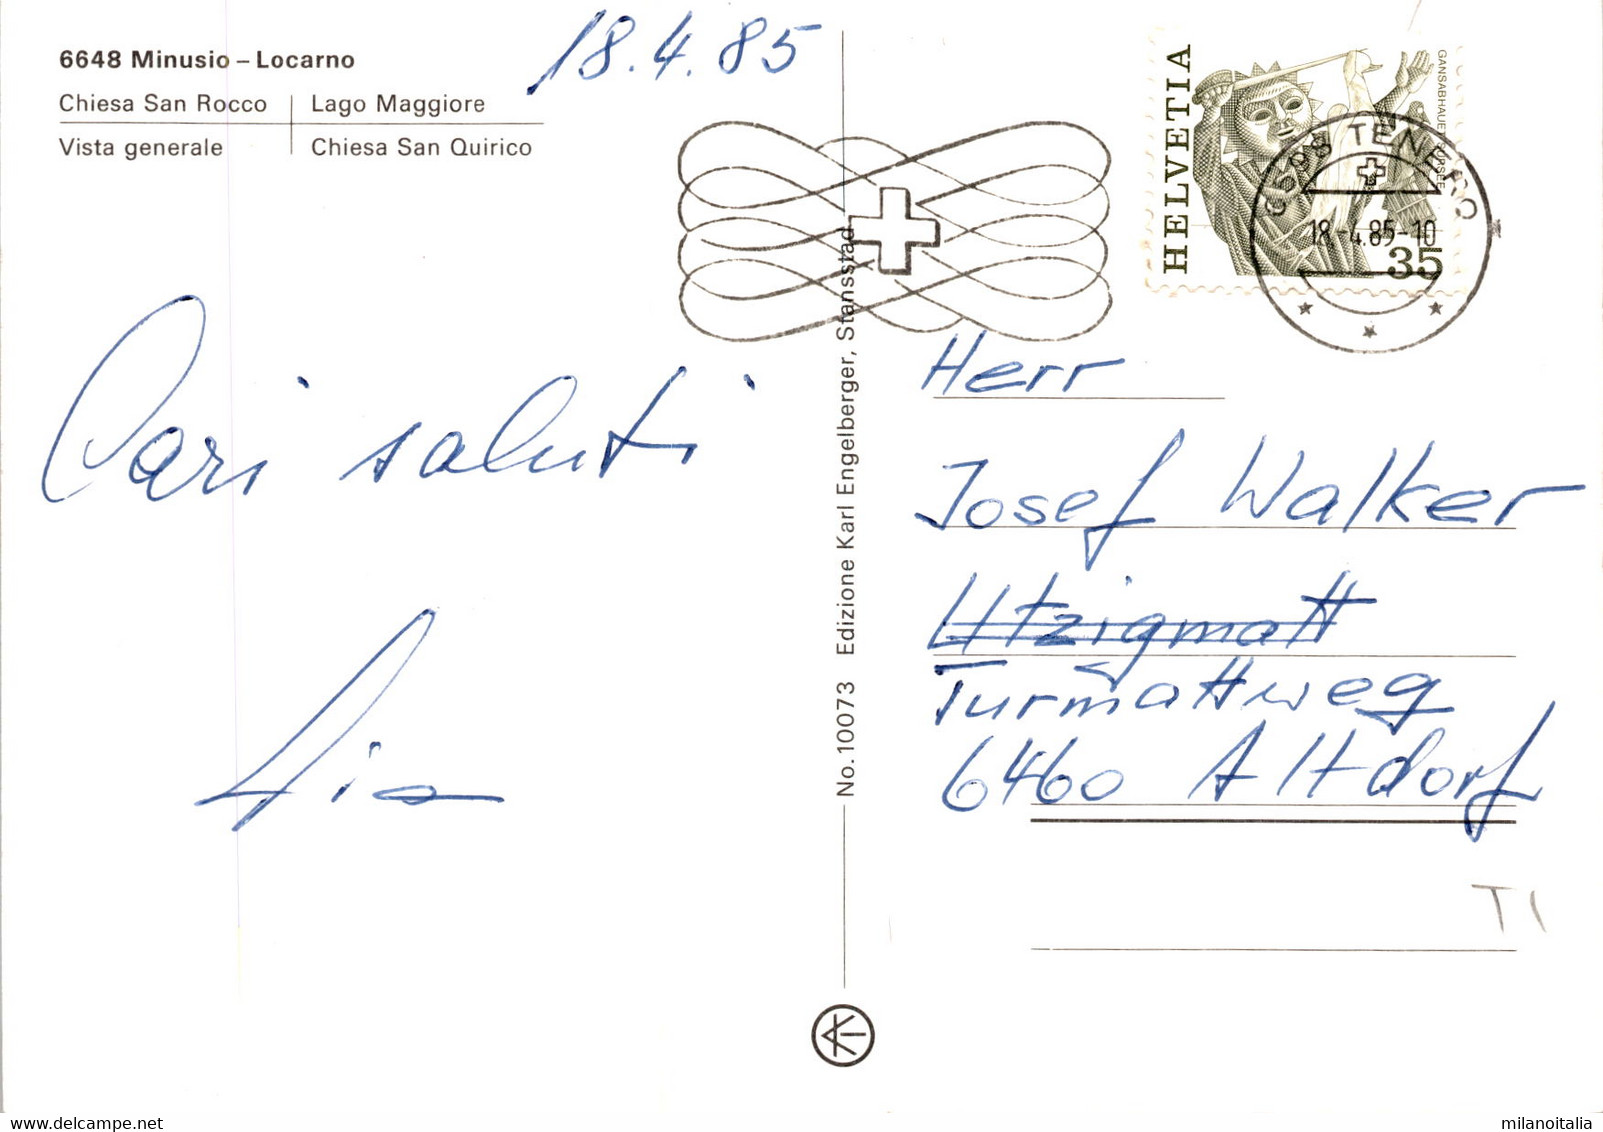 18.4.85
6648 Minusio – Locarno
Chiesa San Rocco | Lago Maggiore
Vista generale | Chiesa San Quirico
HELVETIA
GANSABHAUET SURSEE
35
6598 TENERO
18.-4.85-10
Cari saluti
No. 10073 Edizione Karl Engelberger, Stansstad
Herr
Josef Walker
Utzigmatt
Turmattweg
6460 Altdorf
TI
delcampe.net
milanoitalia